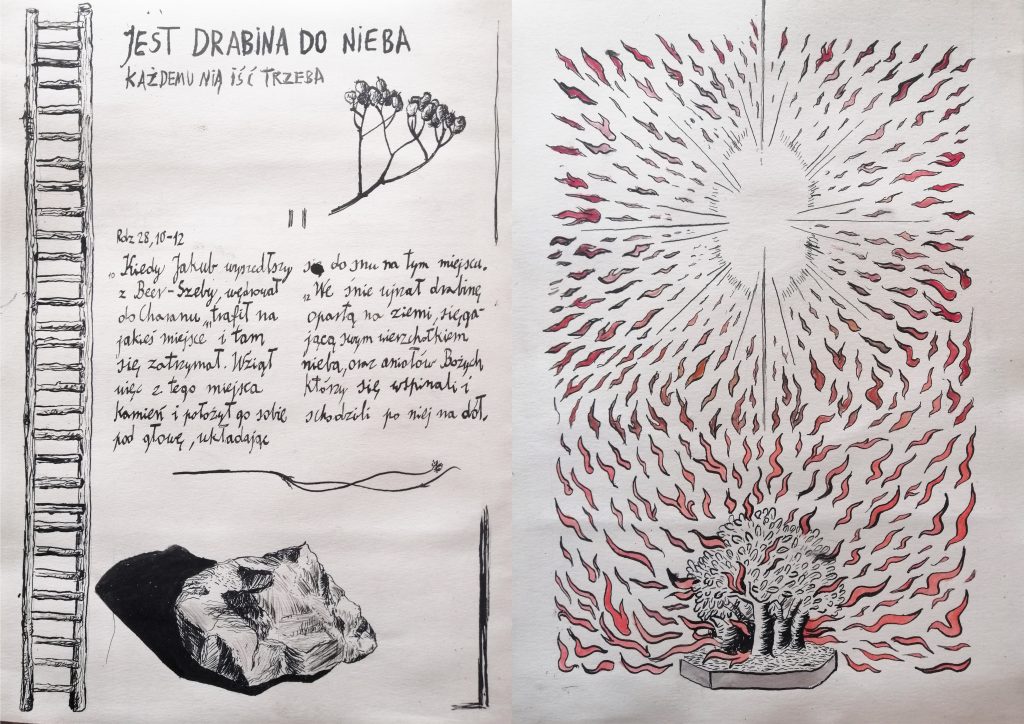 JEST DRABINA DO NIEBA
KAŻDEMU NIĄ IŚĆ TRZEBA
Rdz 28, 10-12
"Kiedy Jakub wyszedłszy
z Beer-Szeby, wędrował
do Charanu, "trafił na
jakieś miejsce i tam
się zatrzymał. Wziął
więc z tego miejsca
kamień i położył go sobie
pod głowę, układając
się do snu na tym miejscu.
"We śnie ujrzał drabinę
opartą na ziemi, sięga-
jącą swym wierzchołkiem
nieba, oraz aniołów Bożych,
którzy się wspinali i
schodzili po niej na dół.